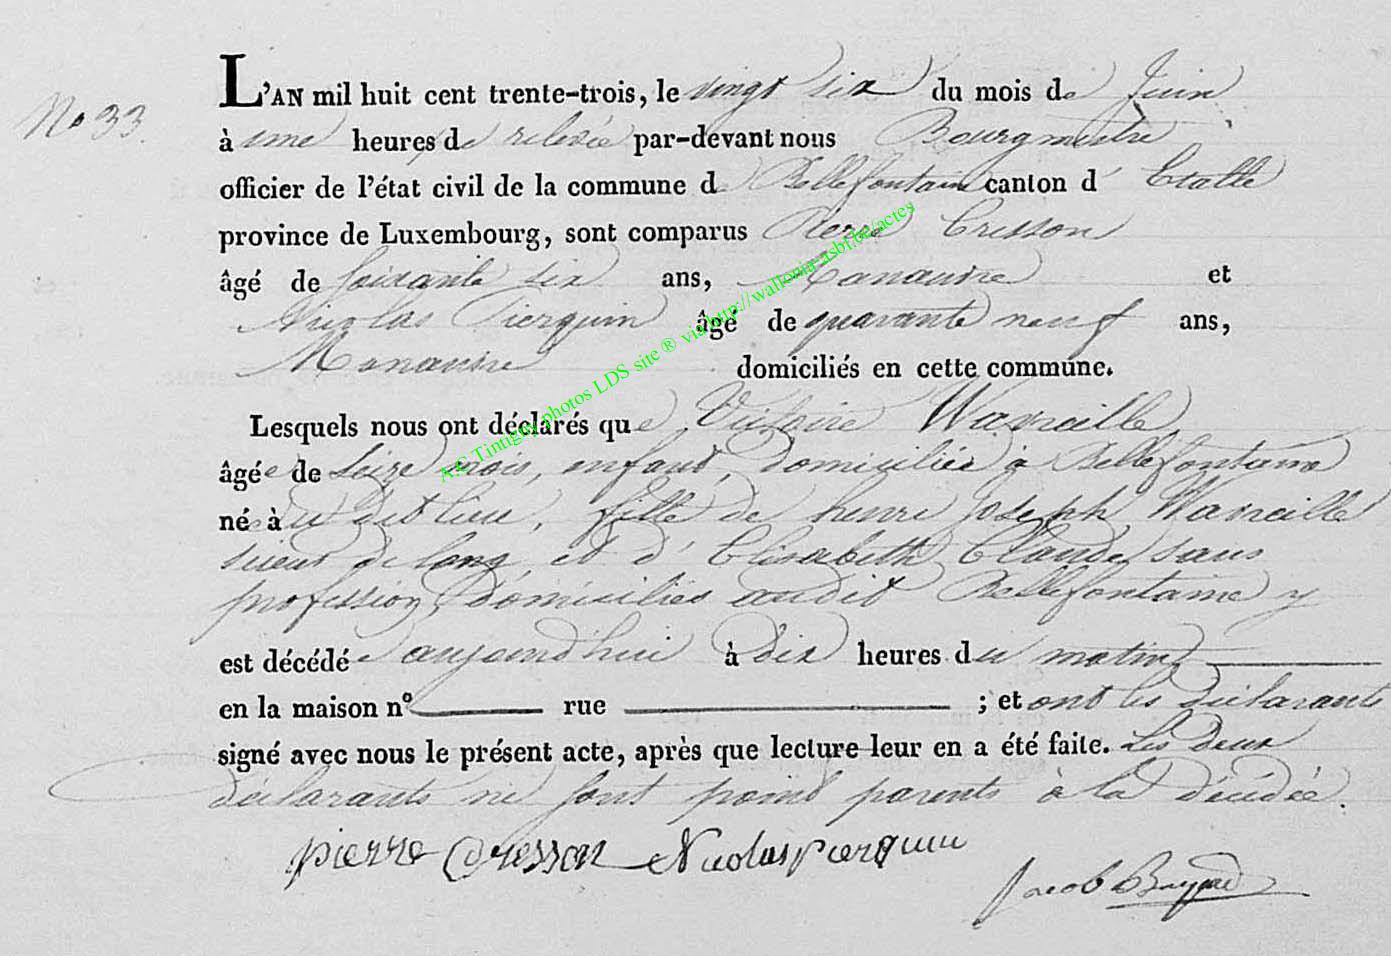 No 33.
L'AN mil huit cent trente-trois, le vingt six du mois de Juin
à une heures de relevée par-devant nous Bourgmestre
officier de l'état civil de la commune de Bellefontaine canton d' Etalle
province de Luxembourg, sont comparus Pierre Cresson
âgé de soixante six ans, Manœuvre et
Nicolas Pierquin âgé de quarante neuf ans,
Manœuvre domiciliés en cette commune.
Lesquels nous ont déclarés que Victoire Wameille,
âgée de seize mois, enfant, domiciliée à Bellefontaine
né à au dit lieu, fille de henri Joseph Wameille
sieur de long, et d' Elisabeth Claude, sans
profession, domiciliés audit Bellefontaine y
est décédée aujourd'hui à dix heures du matin
en la maison n° rue ; et ont les déclarants
signé avec nous le présent acte, après que lecture leur en a été faite. Les deux
déclarants ne sont point parents à la décédée.
pierre Cresson Nicolas pierquin
Jacob
A.C. Tintigny photos LDS site ® via http://wallonia-asbl.be/actes